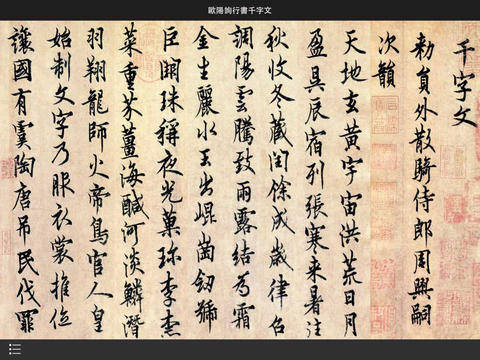 歐陽詢行書千字文
千字文
勑員外散騎侍郎周興嗣
次韻
天地玄黃宇宙洪荒日月
盈昃辰宿列張寒来暑往
秋收冬藏閏餘成歲律吕
調陽雲騰致雨露結為霜
金生麗水玉出崐崗劒號
巨闕珠稱夜光菓珎李柰
菜重芥薑海醎河淡鱗潛
羽翔龍師火帝鳥官人皇
始制文字乃服衣裳推位
讓國有虞陶唐吊民伐罪